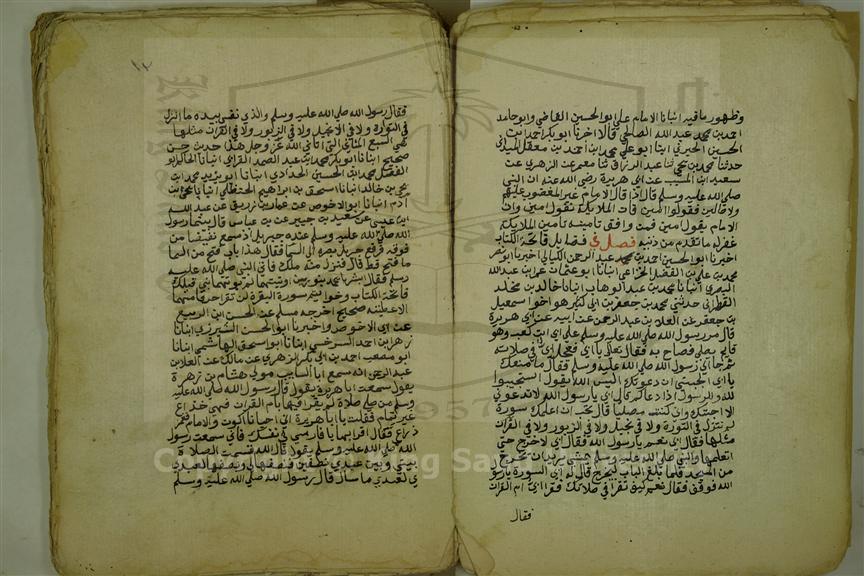 وظهور ما فيه انبانا الامام علي ابو الحسين القاضي وابو حامد
احمد بن محمد عبد الله الصالحي قالا اخبرنا ابو بكر احمد بن
الحسين الحيري انبا ابو علي محمد بن احمد بن معقل الميداني
حدثنا محمد بن يحيى ثنا عبد الرزاق ثنا معمر عن الزهري عن
سعيد ابن المسيب عن ابي هريرة رضي الله عنه ان النبي
صلى الله عليه وسلم قال اذا قال الامام غير المغضوب عليهم
ولا الضالين فقولوا امين فان الملايكة تقول امين وان
الامام يقول امين فمن وافق تامينه تامين الملايكة
غفر له ما تقدم من ذنبه فصل في فضايل فاتحة الكتاب
اخبرنا ابو الحسين احمد بن محمد عبد الرحمن الكيالي اخبرنا ابو نصر
محمد بن علي بن الفضل الخزاعي انبانا ابو عثمان عمر بن عبد الله
البصري انبانا محمد بن عبد الوهاب انبانا خالد بن مخلد
القطواني حدثني محمد بن جعفر بن ابي كثير هو اخو اسمعيل
بن جعفر عن العلا بن عبد الرحمن عن ابيه عن ابي هريرة
قال مر رسول الله صلى الله عليه وسلم على ابي ابن كعب وهو
قايم يصلي فصاح به فقال تعال يا ابي فعجل ابي في صلاته
ثم جا الى رسول الله صلى الله عليه وسلم فقال ما منعك
يا ابي ان تجيبني اذ دعوتك اليس الله يقول استجيبوا
لله وللرسول اذا دعاكم قال ابي يا رسول الله لا تدعوني
الا اجبتك وان كنت مصليا قال تحب ان اعلمك سورة
لم تنزل في التوراة ولا في نجيل ولا في الزبور ولا في القران
مثلها فقال ابي نعم يا رسول الله فقال اي لا تخرج حتى
تعلمها والنبي صلى الله عليه وسلم يمشي يريد ان يخرج
من المسجد فلما بلغ الباب ليخرج قال له ابي السورة يا رسول
الله فوقف فقال نعم كيف تقرا في صلاتك فقرا ابي ام القران
فقال
١٢
فقال رسول الله صلى الله عليه وسلم والذي نفسي بيده ما انزل
في التوراة ولا في الانجيل ولا في الزبور ولا في القران مثلها
هي السبع المثاني التي اتاني الله عز وجل هذا حديث حسن
صحيح انبانا ابو بكر محمد بن عبد الصمد الترابي انبانا الحاكم ابو
الفضل محمد ابن الحسين الحدادي انبانا ابو يزيد محمد ابن
يحيى بن خالد انبانا اسحق بن ابراهيم الحنظلي انبانا يحيى بن
ادم انبانا ابو الاحوص عن عمار بن زريق عن عبد الله
ابن عيسى عن سعيد بن جبير عن بن عباس قال بينما رسول
الله صلى الله عليه وسلم عنده جبريل اذ سمع نقيضا من
فوقه فرفع جبريل بصره الى السما فقال هذا باب فتح من السما
ما فتح قط قال فنزل منه ملك فاتى النبي صلى الله عليه
وسلم فقال ابشر يا محمد بنورين اوتيتهما لم يوتهما نبي قبلك
فاتحة الكتاب وخواتيم سورة البقرة لن تقرا حرفا منهما
الا اعطيته صحيح اخرجه مسلم عن الحسن ابن الربيع
عن ابي الاحوص واخبرنا ابو الحسن الشيرزي انبانا
زهر ابن احمد السرخسي انبانا ابو اسحق الهاشمي انبانا
ابو مصعب احمد بن ابي بكر الزهري عن مالك عن العلا بن
عبد الرحمن انه سمع ابا السايب مولى هشام بن زهرة
يقول سمعت ابا هريرة يقول قال رسول الله صلى الله عليه
وسلم من صلى صلاة لم يقرا فيها بام القران فهي خداج
غير تمام فقلت يا ابا هريرة اني احيانا اكون وراء الامام فغمز
ذراعي فقال اقرا بها يا فارسي في نفسك فاني سمعت رسول
الله صلى الله عليه وسلم يقول قال الله قسمت الصلاة
بيني وبين عبدي نصفين فنصفها لي ونصفها لعبدي
ولعبدي ما سال قال رسول الله صلى الله عليه وسلم